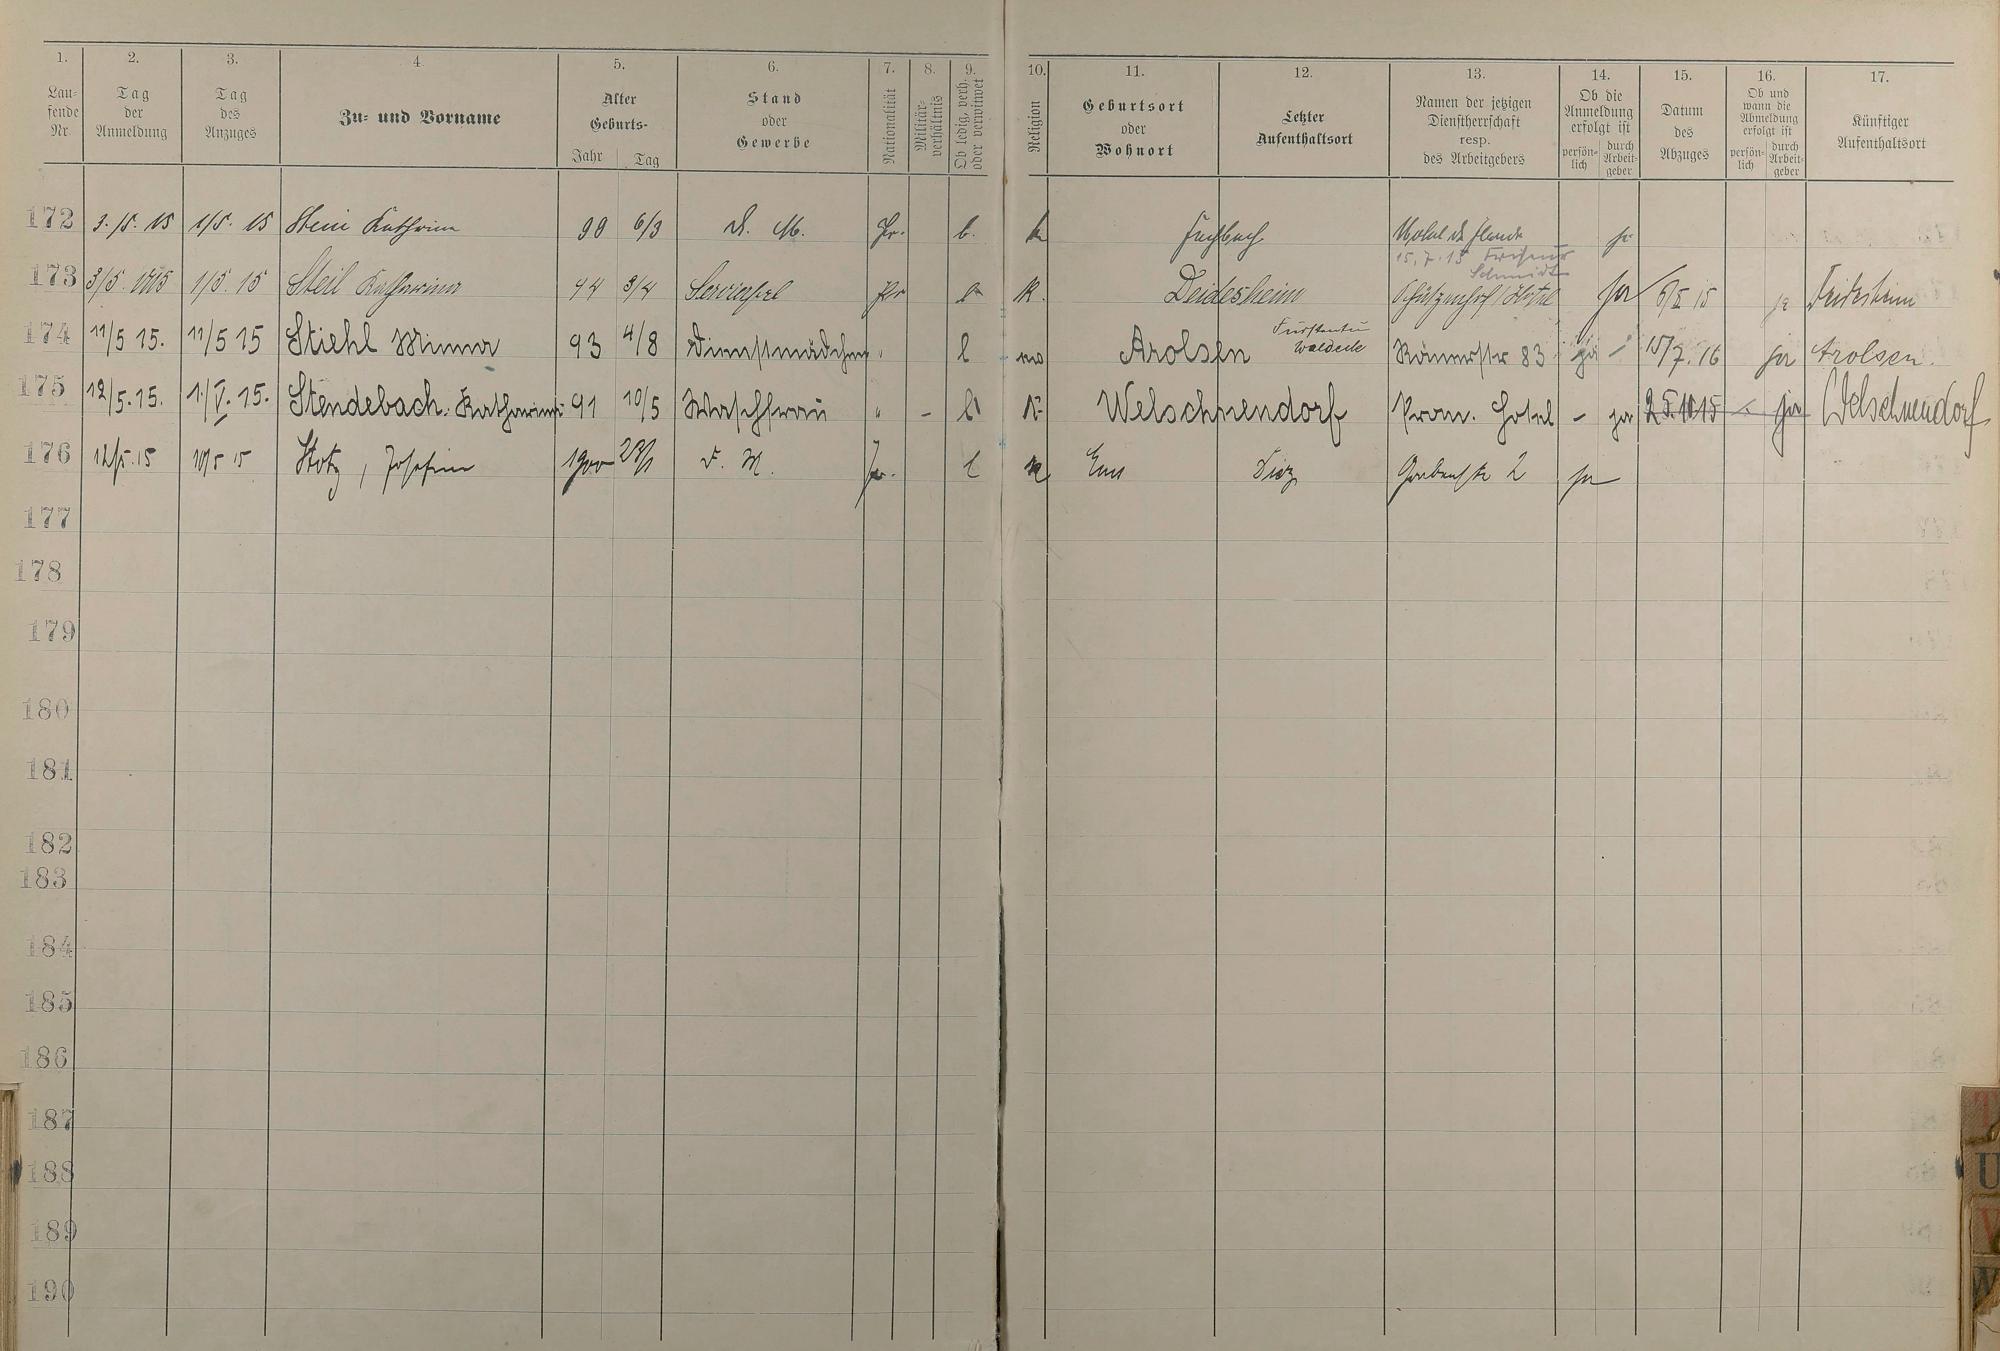 1. 2. 3. 4. 5. 6. 7. 8. 9. 10. 11. 12. 13. 14. 15. 16. 17.
Lau-
fende
Nr.
Tag
der
Anmeldung
Tag
des
Anzuges
Zu- und Vorname
Alter
Geburts-
Jahr Tag
Stand
oder
Gewerbe
Nationalität
Militär-
verhältnis
Ob ledig, verh.
oder verwitwet
Religion
Geburtsort
oder
Wohnort
Letzter
Aufenthaltsort
Namen der jetzigen
Dienstherrschaft
resp.
des Arbeitgebers
Ob die
Anmeldung
erfolgt ist
persön-
lich
durch
Arbeit-
geber
Datum
des
Abzuges
Ob und
wann die
Abmeldung
erfolgt ist
persön-
lich
durch
Arbeit-
geber
Künftiger
Aufenthaltsort
172 3./5. 15 1/5. 15 Stein Katharina 99 6/3 D. M. Pr. l. k Fachbach ja
15.7.15 Friseur
Schmidt
173 3/5. 1915 1/5. 15 Steil Katharina 94 3/4 Pr l K. Deidesheim Schützenhof Hotel ja 15 ja Deidesheim
174 11/5 15. 11/5 15 Stiehl Minna 93 4/8 Dienstmädchen " l Arolsen Fürstentu Waldeck Römerstr 83 ja - 15/7. 16 ja Arolsen.
175 12/5. 15. 1./V. 15. Stendebach. Katharina 91 10/5 Waschfrau " - l K. Welschneudorf Prom. Hotel - ja 25.10.15 - ja Welschneudorf
176 12/5. 15 10/5 15 Stotz, Josefine 1900 D. M. Pr. l K Ems Diez Grabenstr 2 ja
177
178
179
180
181
182
183
184
185
186
187
188
189
190
T
U
V
W